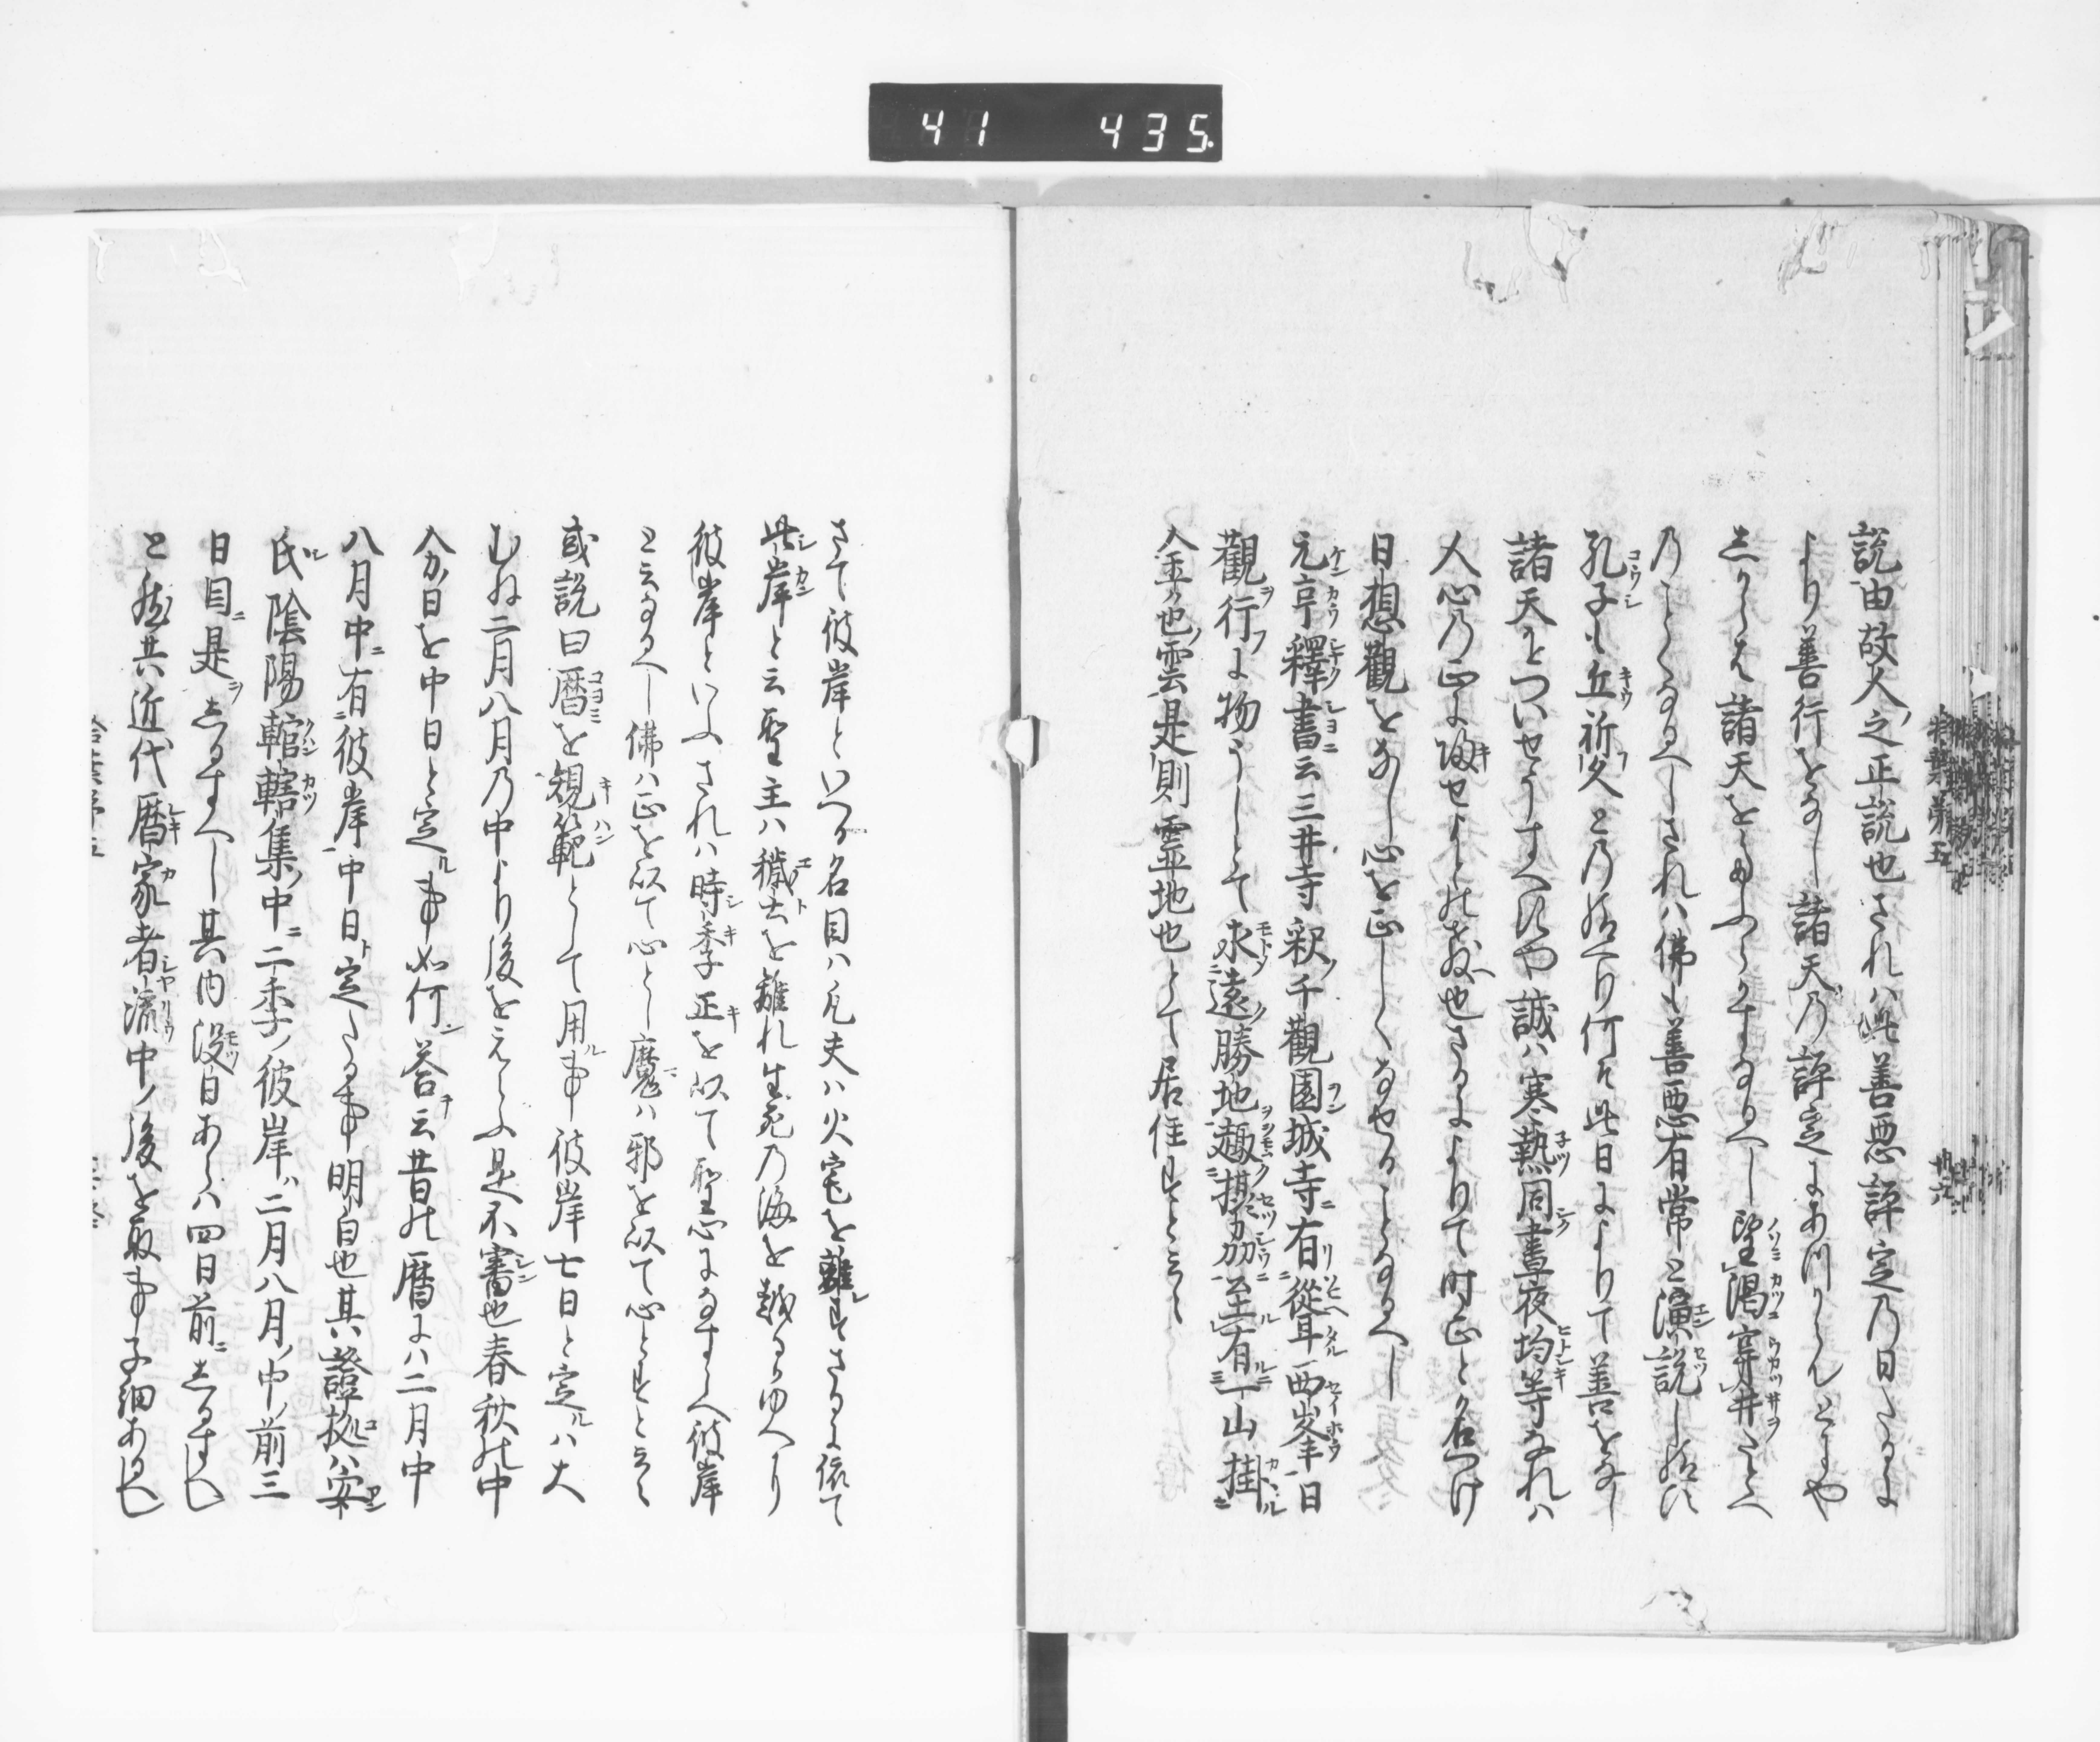 41 435
説由故人之正説也されハ此善悪評定乃日なるに
より善行をなし諸天乃評定にあつからんとにや
しからは諸天をよふへからすなるへし望渇穿井たとへ
乃ことくなるへしされハ佛も善悪有常と演説し給ひ
孔子も丘祈久との給へり何そ此日によりて善をなし
諸天をついせうすへけんや誠ハ寒熱同昼夜均等なれハ
人心乃正に帰せよとの教也さるによりて時正と名つけ
日想観をなし心を正しくなせることなるへし
元亨釋書云三井寺釈千観園城寺有従耳西峯日
観行に物うしとて求遠勝地趣摂刕至有一山掛
金色雲是則霊地也とて居住すと云々
さて彼岸といへる名目ハ凡夫ハ火宅を離れすさるに依て
此岸と云聖主ハ穢土を離れ生死乃海を越るゆへり
彼岸といふされハ時季正を以て聖心になすへ彼岸
と云なるへし佛ハ正を以て心とし魔ハ邪を以て心とすと云々
或説曰暦を規範として用事彼岸七日と定ルハ大
むね二月八月乃中より後をえらふ是不審也春秋の中
分日を中日と定ル事如何答云昔の暦にハ二月中
八月中有彼岸中日ト定たる事明白也其證拠ハ安
氏陰陽輨轄集中二季ノ彼岸ハ二月八月ノ中ノ前三
日目是しるすへし其内没日あらハ四日前しるすへし
と然共近代暦家者流中ノ後を取事子細あるへし